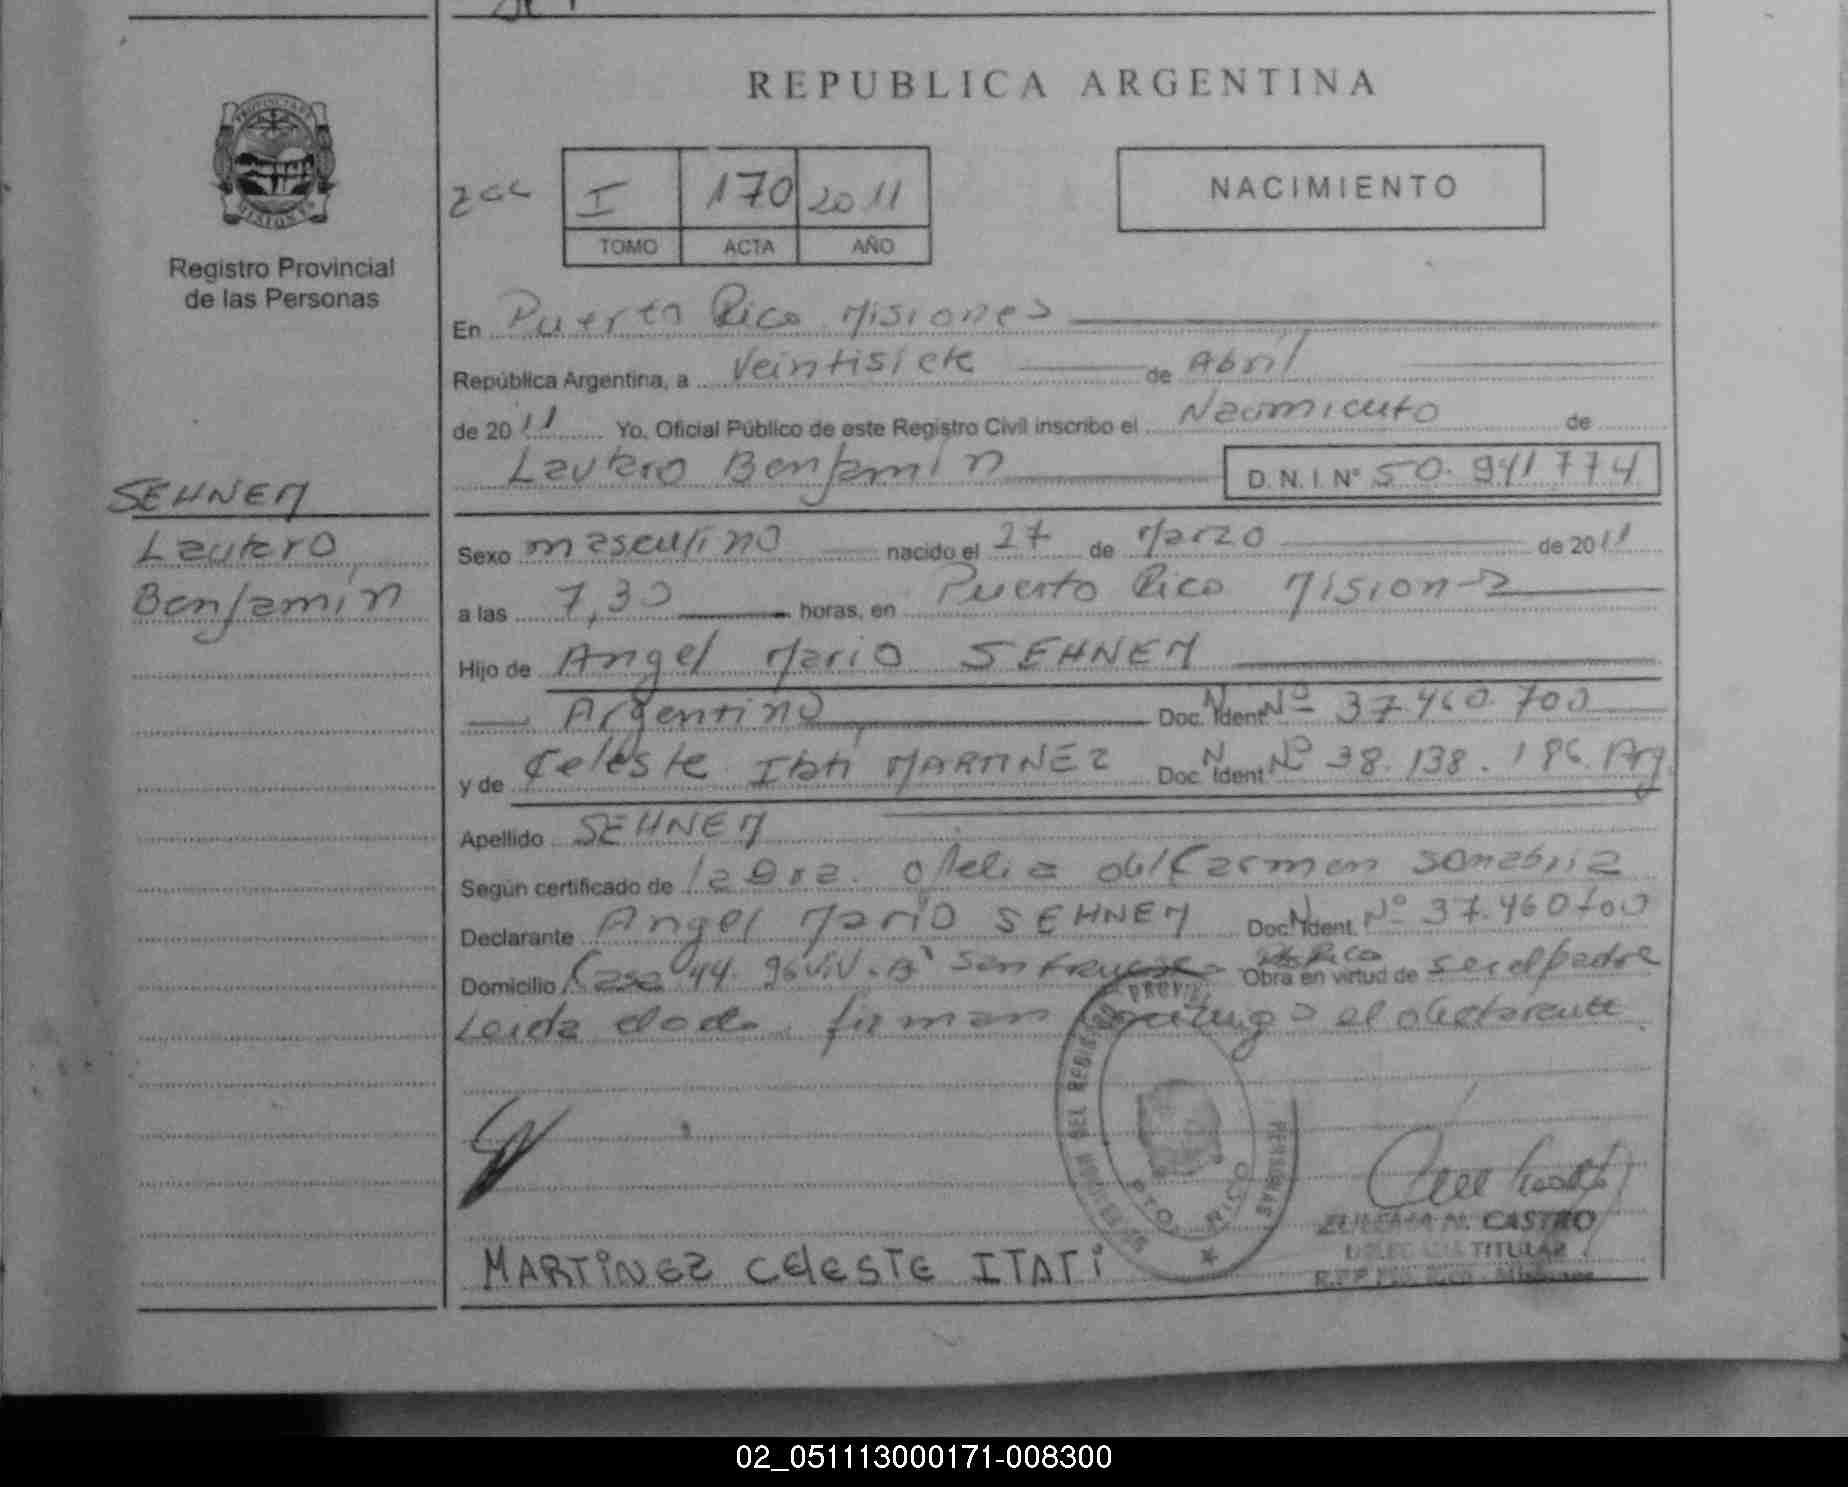 REPUBLICA ARGENTINA
I 170 2011
TOMO ACTA AÑO
NACIMIENTO
Registro Provincial
de las Personas
En Puerto Rico Misiones
República Argentina, a Veintisiete de Abril
de 2011 Yo, Oficial Público de este Registro Civil inscribo el Nacimiento de
Lautaro Benjamín D.N.I. Nº 50.941774
SEHNEM
Lautaro
Benjamín
Sexo masculino nacido el 27 de Marzo de 2011
a las 7,30 horas, en Puerto Rico Misiones
Hijo de Angel Mario SEHNEM
Argentino Doc. N. Ident Nº 37.460.700
y de Celeste Itatí MARTINEZ Doc. N. Ident Nº 38.138.186. Arg.
Apellido SEHNEM
Según certificado de la Dra. Ofelia del Carmen Sanabria
Declarante Angel Mario SEHNEM Doc. N. Ident. Nº 37.460700
Domicilio Casa 44. 96 Viv. Bº San Pto Rico Obra en virtud de ser el padre
Leida firman el declarante
PTO. RICO
PERSONAS
CASTRO
TITULAR
MARTINEZ CELESTE ITATI
02_051113000171-008300